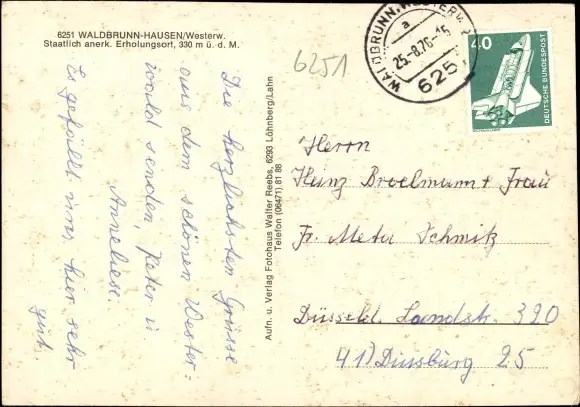 6251 WALDBRUNN-HAUSEN/Westerw.
Staatlich anerk. Erholungsort, 330 m ü. d. M.
Die herzlichsten Grüsse
aus dem schönen Wester-
wald senden, Peter u
Anneliese.
Es gefällt uns hier sehr
gut.
Aufn. u. Verlag Fotohaus Walter Reebs, 6293 Löhnberg/Lahn
Telefon (06471) 61 88
6251
WALDBRUNN, WESTERW.
a
25.-8.76-15
6251
40
DEUTSCHE BUNDESPOST
Herrn
Heinz Broelmann + Frau
Fr. Meta Schmitz
Düsseld. Landstr. 320
41) Duisburg 25